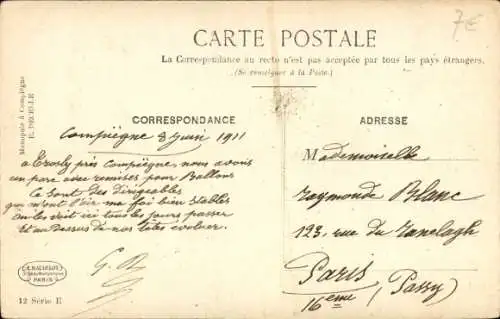 7€
CARTE POSTALE
La Correspondance au recto n'est pas acceptée par tous les pays étrangers.
(Se renseigner à la Poste)
Monopole à Compiègne
CORRESPONDANCE
Compiègne 8 Juin 1911
à Trosly près Compiègne, nous avons
un parc avec remises pour Ballons
Ce sont des dirigeables
qui m'ont l'air ma foi bien stables
On les voit ici tous les jours passer
Et au dessus de nos têtes évoluer.
G. R
PARIS
12 Série E
ADRESSE
Mademoiselle
Raymonde Blanc
123, rue du Ranelagh
Paris
16ème (Passy)